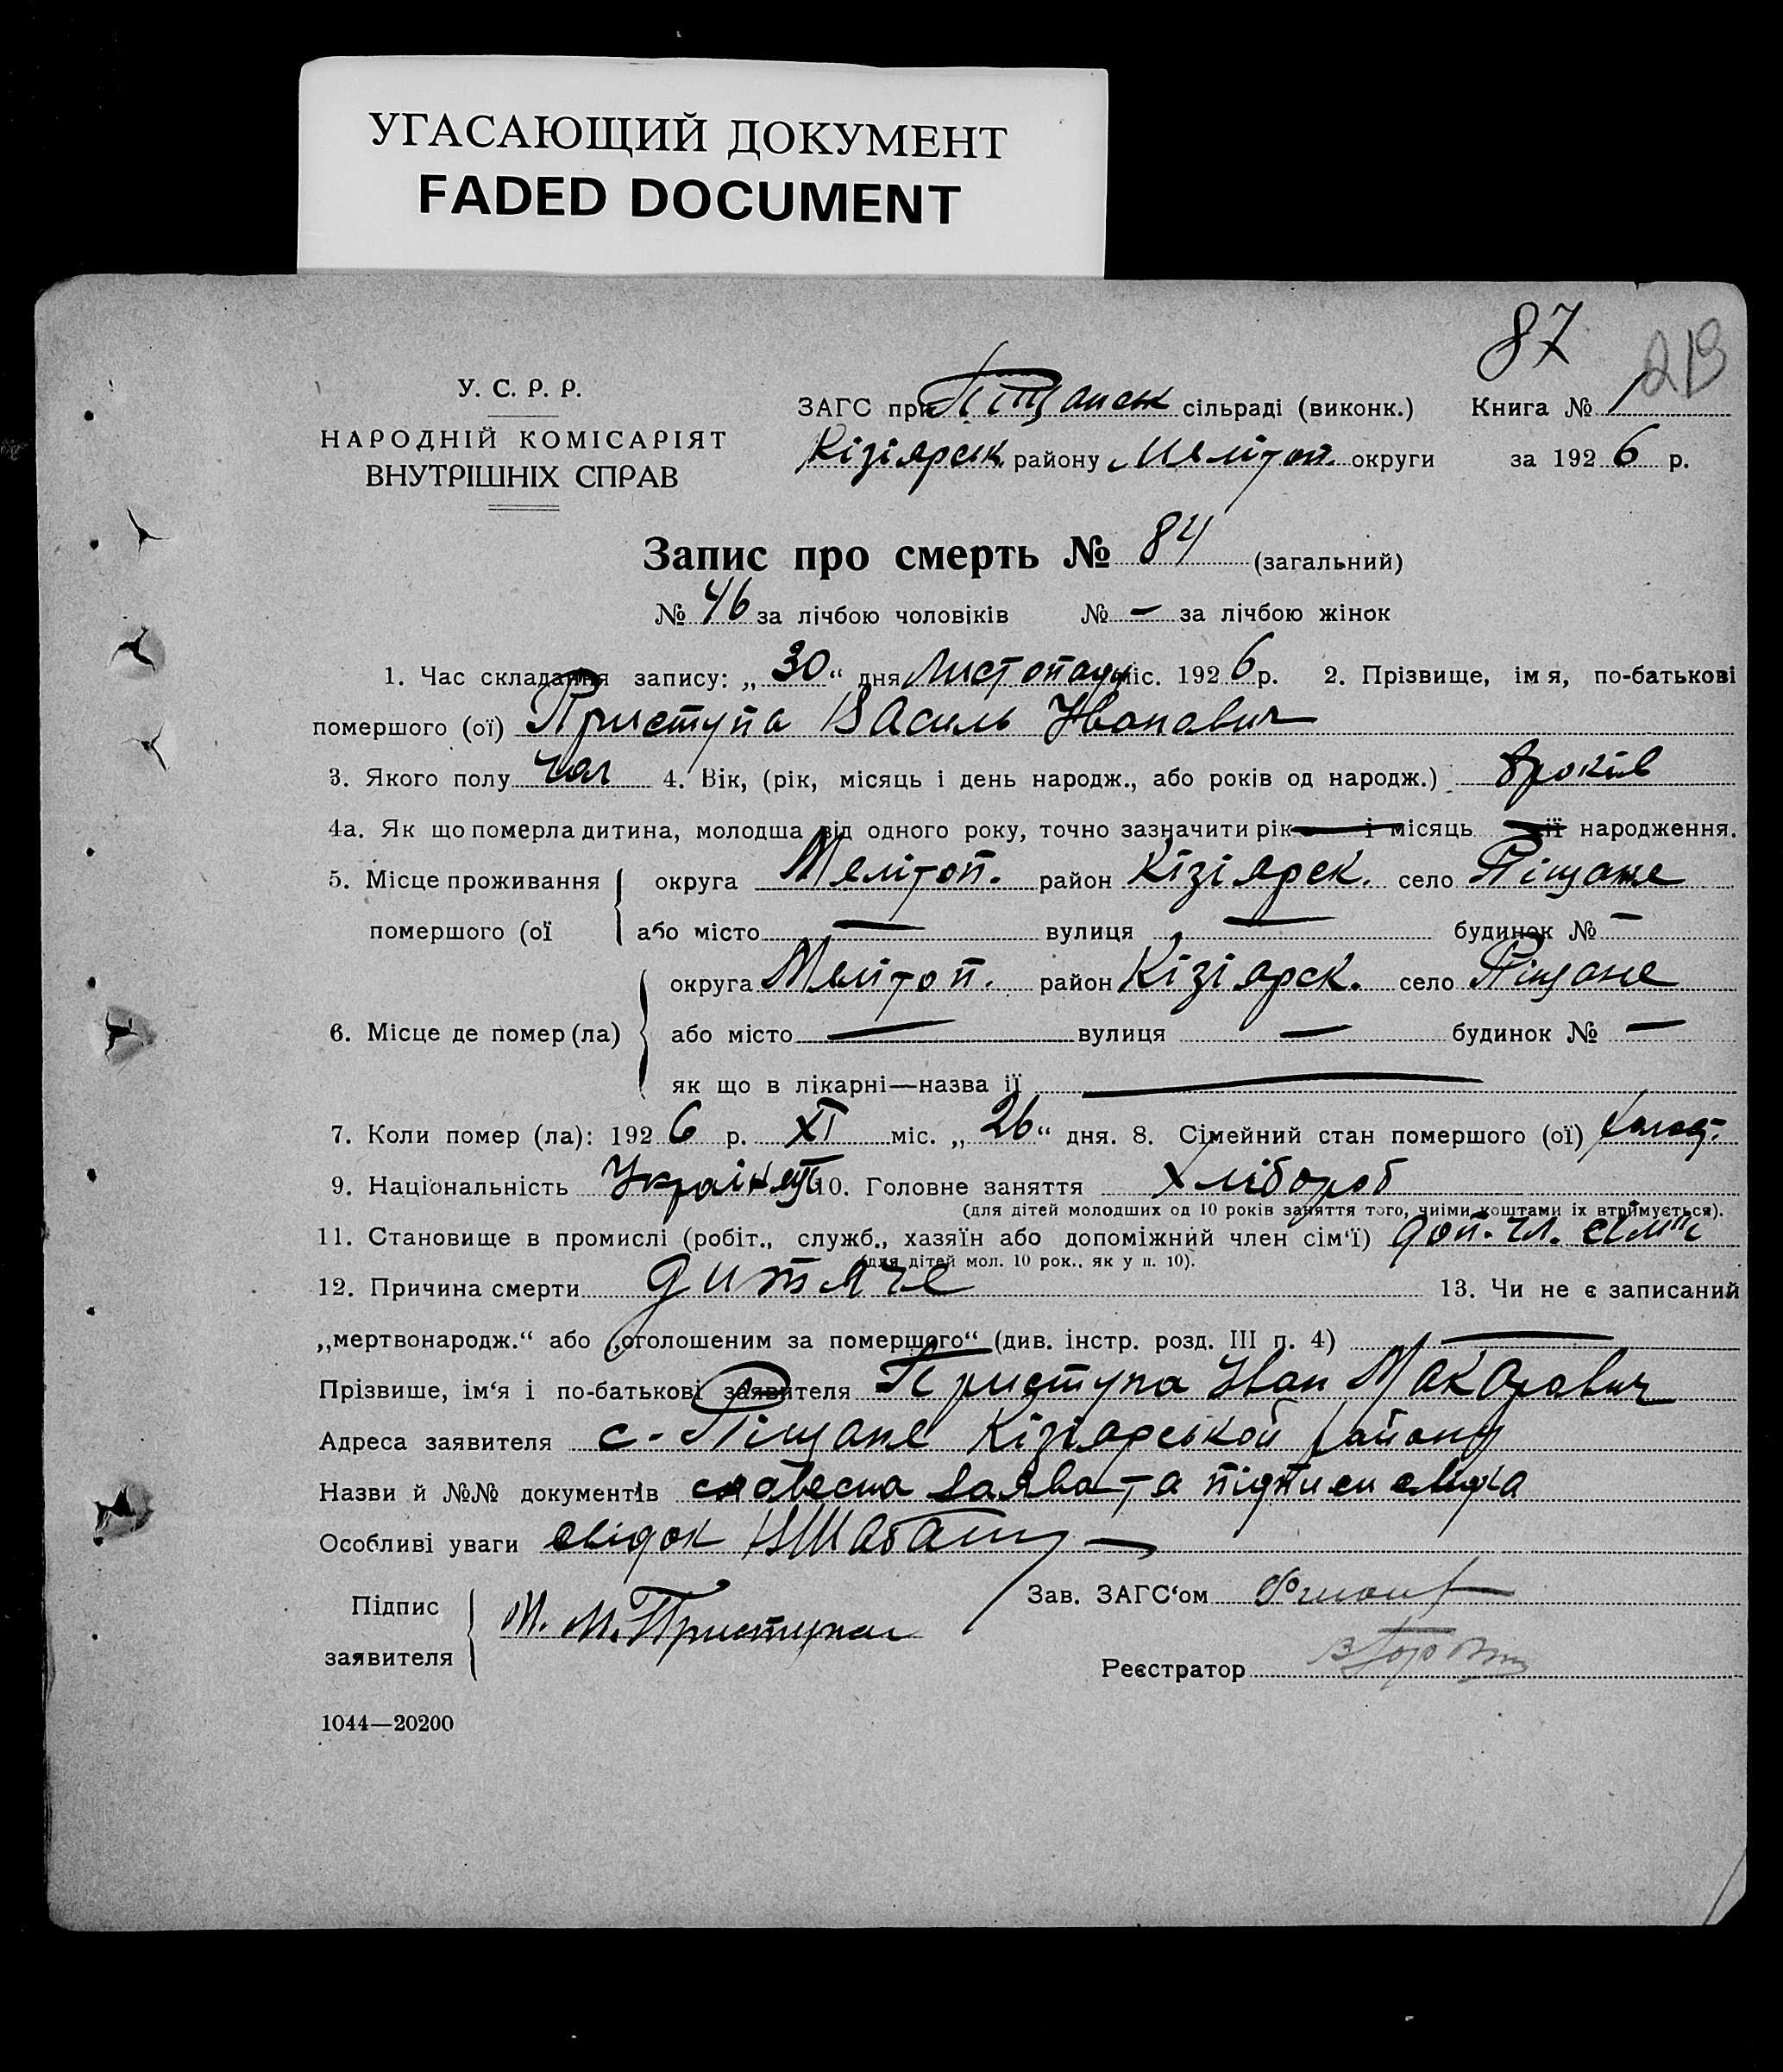 УГАСАЮЩИЙ ДОКУМЕНТ
FADED DOCUMENT
87
213
У. С. Р. Р.
НАРОДНІЙ КОМІСАРІЯТ
ВНУТРІШНІХ СПРАВ
ЗАГС при Піщанськ сільраді (виконк.) Книга № 1
Кізіярськ. району Меліт оп. округи за 1926 р.
Запис про смерть № 84 (загальний)
№ 46 за лічбою чоловіків № — за лічбою жінок
1. Час складання запису: „30“ дня Листопаду міс. 1926 р. 2. Прізвище, імя, по-батькові
помершого (ої) Приступа Василь Іванович
3. Якого полу чол 4. Вік, (рік, місяць і день народж., або років од народж.) 8 років
4а. Як що померла дитина, молодша від одного року, точно зазначити рік — і місяць — її народження.
5. Місце проживання округа Меліт оп. район Кізіярск. село Піщане
помершого (ої або місто — вулиця — будинок № —
округа Меліт оп. район Кізіярск. село Піщане
6. Місце де помер (ла) або місто — вулиця — будинок № —
як що в лікарні—назва її —
7. Коли помер (ла): 1926 р. XI міс. „26“ дня. 8. Сімейний стан помершого (ої) холост.
9. Національність 10. Головне заняття Хлібороб
(для дітей молодших од 10 років заняття того, чиїми коштами їх втримується).
11. Становище в промислі (робіт., служб., хазяїн або допоміжний член сім‘ї) доп. чл. сім"ї
(для дітей мол. 10 рок., як у п. 10).
12. Причина смерти дитяче 13. Чи не є записаний
„мертвонародж.“ або „оголошеним за померщого“ (див. інстр. розд. III п. 4) —
Прізвише, ім‘я і по-батькові заявителя Приступа Іван Макарович
Адреса заявителя с. Піщане Кізіярської району
Назви й №№ документів словесна заява та підписи свідка
Особливі уваги свідок —
Підпис
заявителя Приступа
Зав. ЗАГС‘ом
Реєстратор
1044—20200